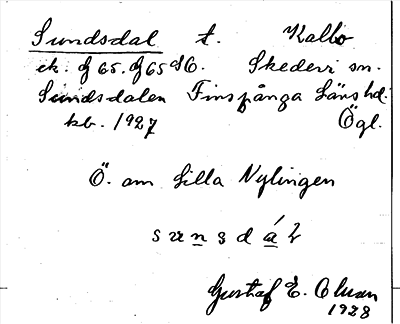 Sundsdal t. Kalbo
ek. f 65. f 65 SO. Skedevi sn.
Sundsdalen Finspånga läns hd.
kb. 1927 Ögl.
Ö. om Lilla Nylingen
Gustaf E. Olsson
1928